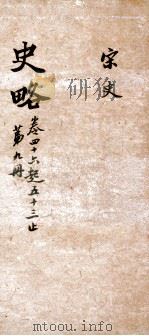 宋史
史略
卷四十六起五十三止
第九册